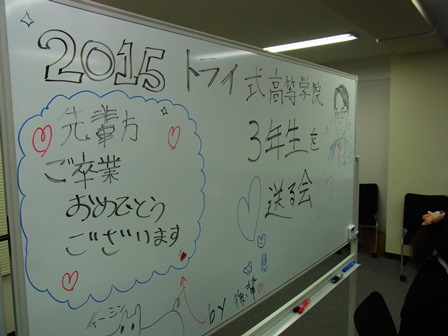 2015 トライ式高等学院
3年生を
送る会
先輩方
ご卒業
おめでとう
ございます
by 後輩